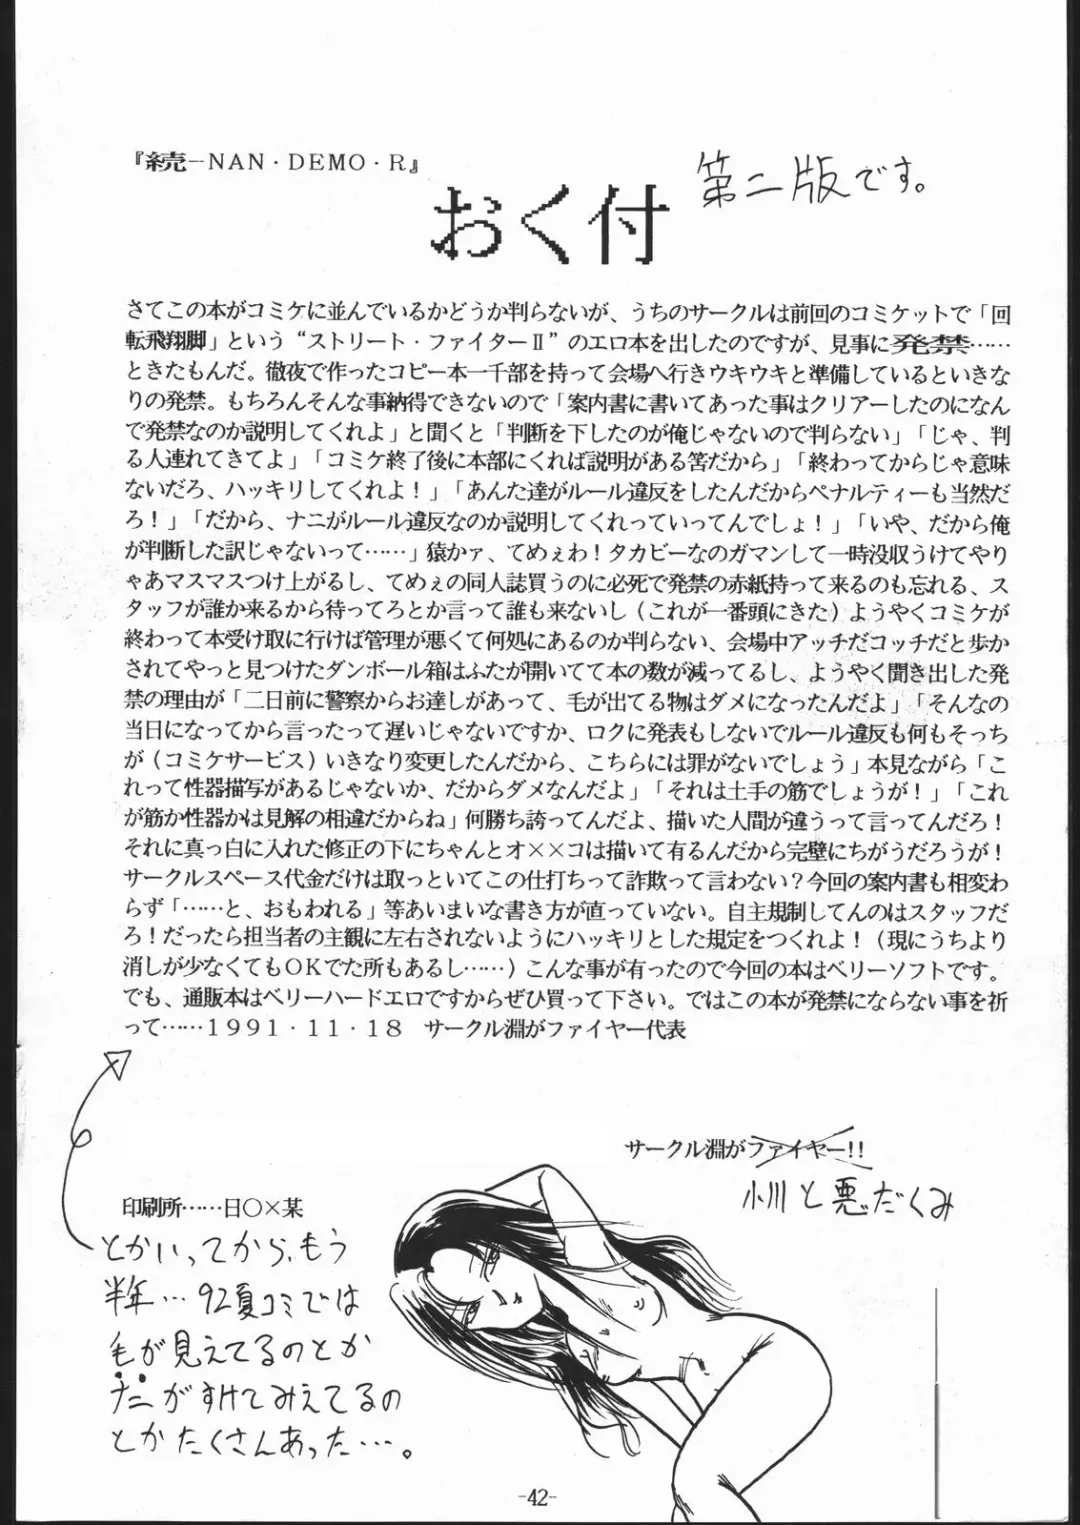 『続－NAN・DEMO・R』
第二版です。
おく付
さてこの本がコミケに並んでいるかどうか判らないが、うちのサークルは前回のコミケットで「回
転飛翔脚」という“ストリート・ファイターⅡ”のエロ本を出したのですが、見事に発禁……
ときたもんだ。徹夜で作ったコピー本一千部を持って会場へ行きウキウキと準備しているといきな
りの発禁。もちろんそんな事納得できないので「案内書に書いてあった事はクリアーしたのになん
で発禁なのか説明してくれよ」と聞くと「判断を下したのが俺じゃないので判らない」「じゃ、判
る人連れてきてよ」「コミケ終了後に本部にくれば説明がある筈だから」「終わってからじゃ意味
ないだろ、ハッキリしてくれよ！」「あんた達がルール違反をしたんだからペナルティーも当然だ
ろ！」「だから、ナニがルール違反なのか説明してくれっていってんでしょ！」「いや、だから俺
が判断した訳じゃないって……」猿かァ、てめぇわ！タカビーなのガマンして一時没収うけてやり
ゃあマスマスつけ上がるし、てめぇの同人誌買うのに必死で発禁の赤紙持って来るのも忘れる、ス
タッフが誰か来るから待ってろとか言って誰も来ないし（これが一番頭にきた）ようやくコミケが
終わって本受け取に行けば管理が悪くて何処にあるのか判らない、会場中アッチだコッチだと歩か
されてやっと見つけたダンボール箱はふたが開いてて本の数が減ってるし、ようやく聞き出した発
禁の理由が「二日前に警察からお達しがあって、毛が出てる物はダメになったんだよ」「そんなの
当日になってから言ったって遅いじゃないですか、ロクに発表もしないでルール違反も何もそっち
が（コミケサービス）いきなり変更したんだから、こちらには罪がないでしょう」本見ながら「こ
れって性器描写があるじゃないか、だからダメなんだよ」「それは土手の筋でしょうが！」「これ
が筋か性器かは見解の相違だからね」何勝ち誇ってんだよ、描いた人間が違うって言ってんだろ！
それに真っ白に入れた修正の下にちゃんとオ××コは描いて有るんだから完璧にちがうだろうが！
サークルスペース代金だけは取っといてこの仕打ちって詐欺って言わない？今回の案内書も相変わ
らず「……と、おもわれる」等あいまいな書き方が直っていない。自主規制してんのはスタッフだ
ろ！だったら担当者の主観に左右されないようにハッキリとした規定をつくれよ！（現にうちより
消しが少なくてもOKでた所もあるし……）こんな事が有ったので今回の本はベリーソフトです。
でも、通販本はベリーハードエロですからぜひ買って下さい。ではこの本が発禁にならない事を祈
って……1991・11・18　サークル淵がファイヤー代表
サークル淵がファイヤー!!
小川と悪だくみ
印刷所……日〇×某
とかいってから、もう
半年…92夏コミでは
毛が見えてるのとか
ナニがすけてみえてるの
とかたくさんあった…。
-42-